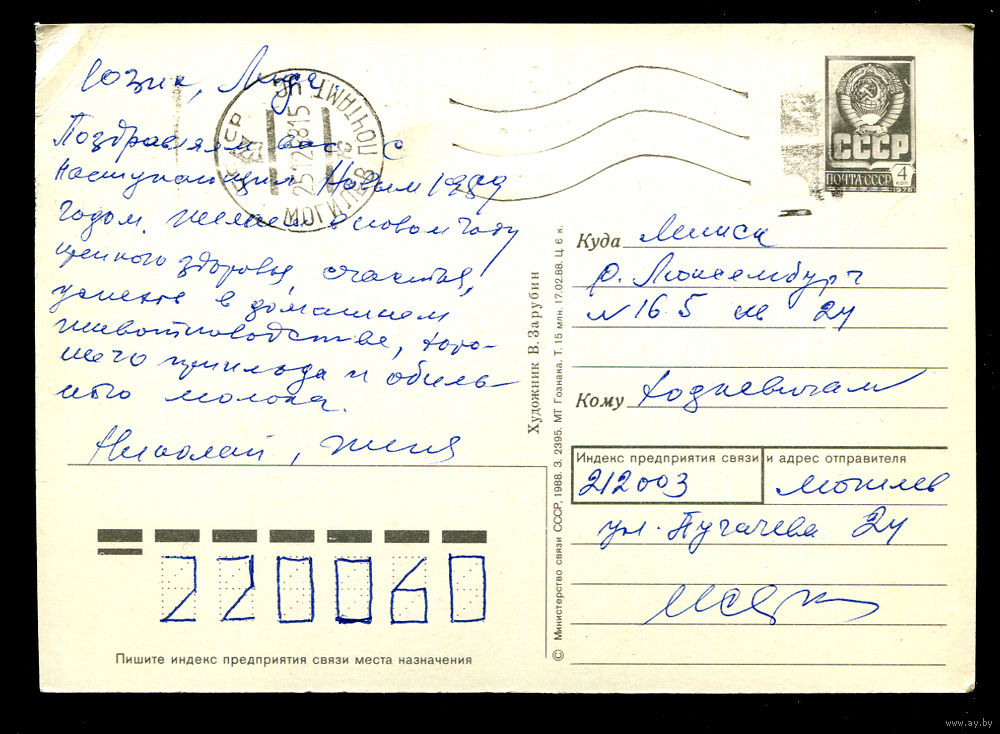 Юзик, Лида
Поздравляем вас с
наступающим Новым 1989
годом. Желаем в новом году
крепкого здоровья, счастья,
успехов в домашнем
животноводстве, хоро-
шего приплода и обиль-
ного молока.
Николай, Женя
МОГИЛЕВ ПОЧТАМТ
25128815
СССР
ПОЧТА СССР 4 КОП
1976
Куда Минск
Р. Люксембург
N 165 кв 24
Кому Ходкевичам
Индекс предприятия связи и адрес отправителя
212003 Могилев
ул. Пугачева 24
Художник В. Зарубин
© Министерство связи СССР, 1988. З. 2395. МТ Гознака. Т. 15 млн. 17.02.88. Ц. 6 к.
220060
Пишите индекс предприятия связи места назначения
www.ay.by